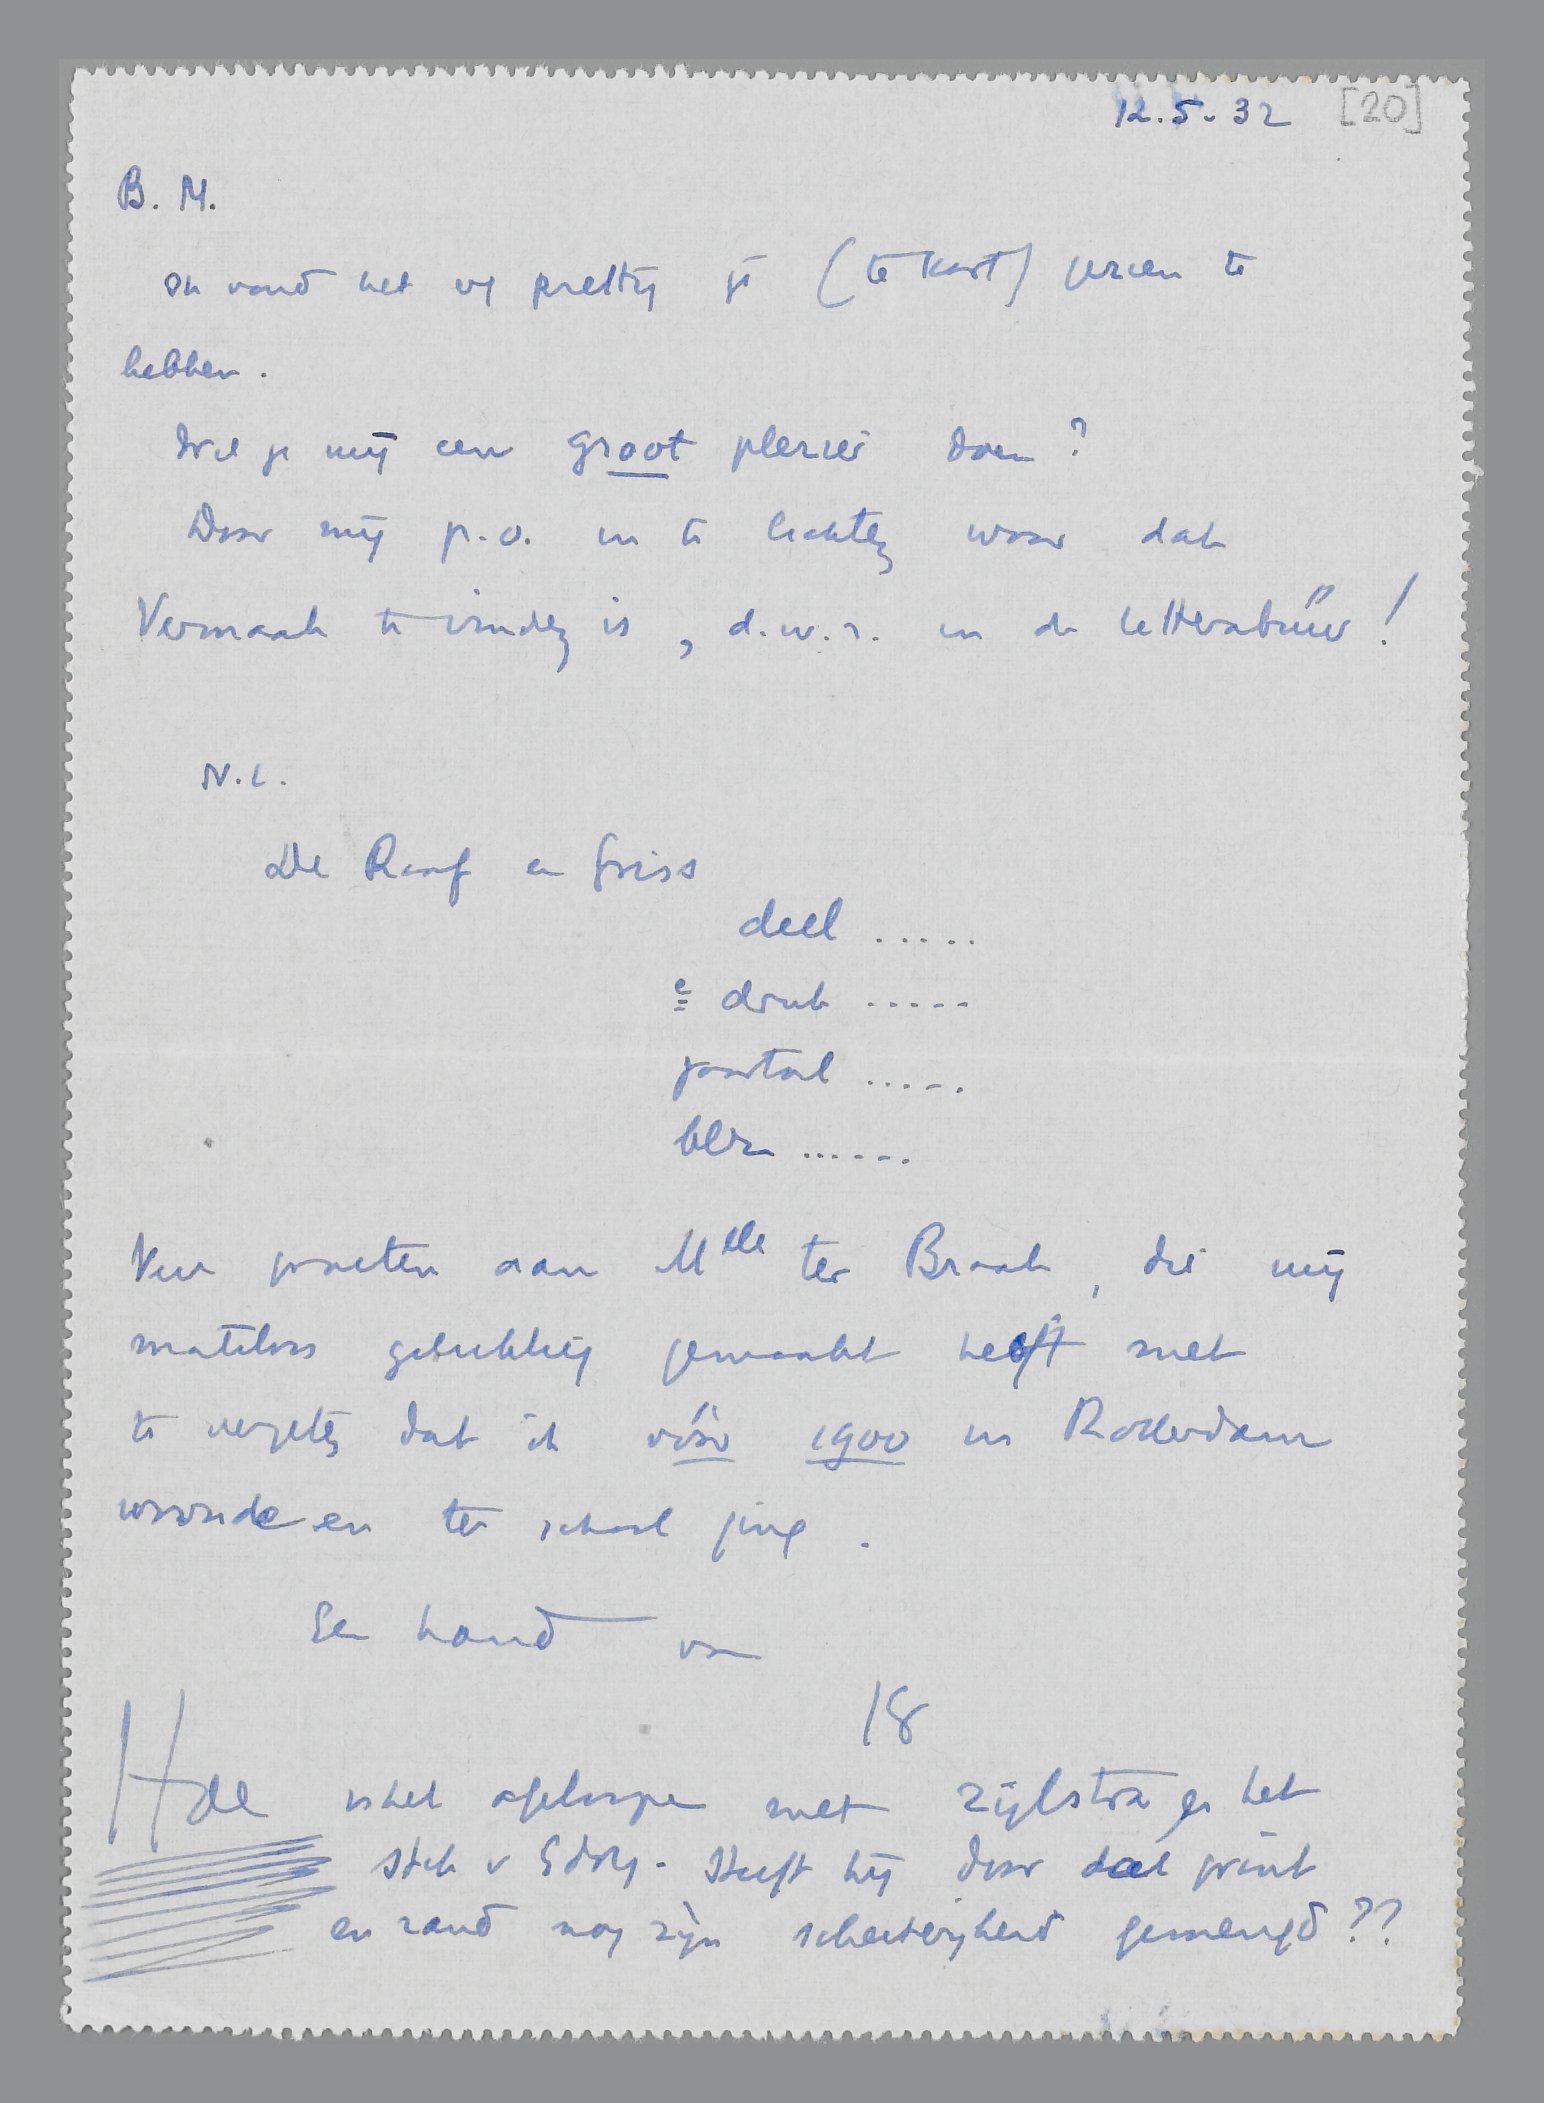 12.5.32 [20]
B. M.
Ik vond het erg prettig je (te kort) gezien te
hebben.
Wil je mij een groot plezier doen?
Door mij p.o. in te lichten waar dat
Vermaak te vinden is, d.w.z. in de letteratuur!
N.L.
De Raaf en Griss
deel .....
e druk .....
jaartal .....
blz. ......
Veel groeten aan Mlle ter Braak, die mij
mateloos gelukkig gemaakt heeft met
te vergeten dat ik vóór 1900 in Rotterdam
woonde en ter school ging.
Een hand van
Hoe is het afgelopen met Zijlstra en het
stuk v Eddy. Heeft hij door dat grint
en zand nog zijn scheeterijheid gemengd??